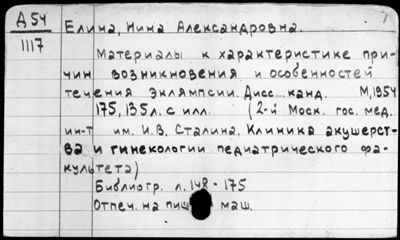 Д 54
1117
Елина, Нина Александровна.
Материалы к характеристике при-
чин возникновения и особенностей
течения эклямпсии. Дисс... канд. М, 1954
175, 135 л. с илл. (2-й Моск. гос. мед.
ин-т им. И.В. Сталина, Клиника акушерст-
ва и гинекологии педиатрического фа-
культета)
Библиогр. л. 148 - 175
Отпеч. на пиш маш.